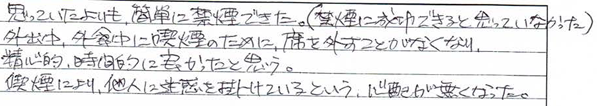 思っていたよりも、簡単に禁煙できた。(禁煙に成功できると思っていなかった)
外出中、外食中に喫煙のために、席を外すことがなくなり、
精神的、時間的に良かったと思う。
喫煙により、他人に迷惑を掛けているという、心配が無くなった。